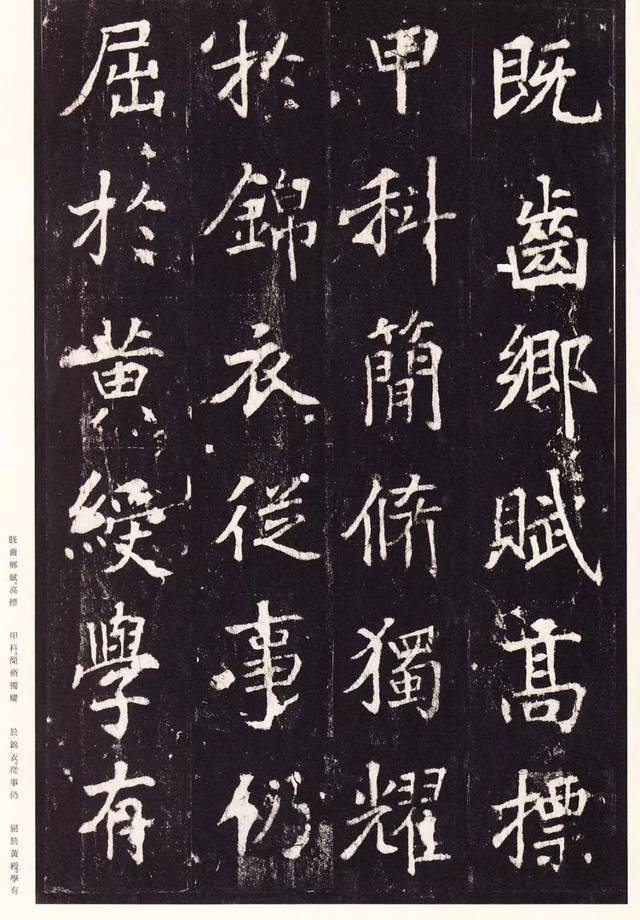 既齒鄉賦高標
甲科簡脩獨耀
於錦衣從事仍
屈於黃綬學有
既齒鄉賦。高標　甲科。簡脩獨耀　於錦衣。從事仍　屈於黃綬。學有